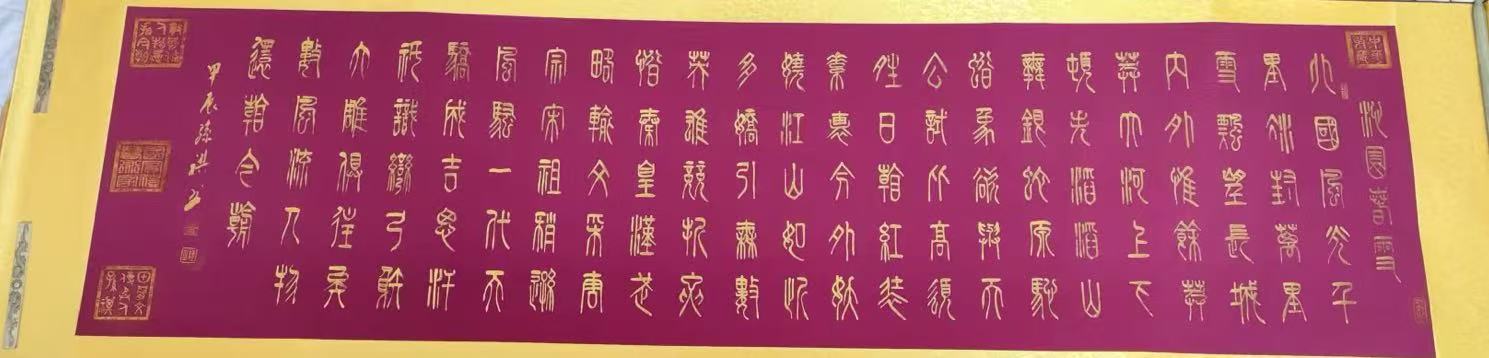 沁園春雪
北國風光千
里冰封萬里
雪飄望長城
內外惟餘莽
莽大河上下
頓失滔滔山
舞銀蛇原馳
蠟象欲與天
公試比高須
晴日看紅裝
素裹分外妖
嬈江山如此
多嬌引無數
英雄競折腰
惜秦皇漢武
略輸文采唐
宗宋祖稍遜
風騷一代天
驕成吉思汗
祇識彎弓射
大雕俱往矣
數風流人物
還看今朝
甲辰孫祺書